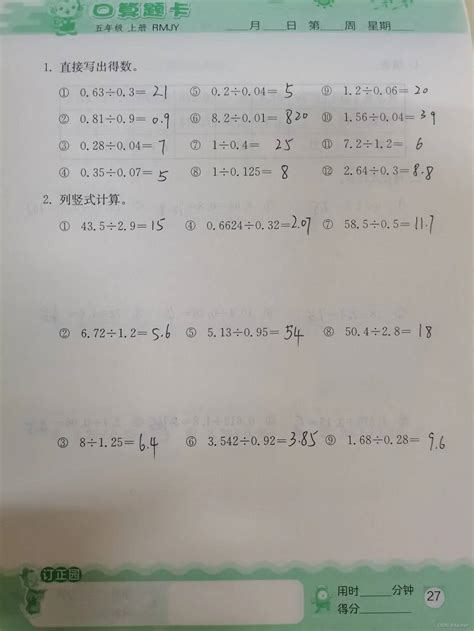 口算题卡
五年级 上册 RMJY 月 日 第 周 星期
1. 直接写出得数。
① 0.63÷0.3= 2.1 ⑤ 0.2÷0.04= 5 ⑨ 1.2÷0.06= 20
② 0.81÷0.9= 0.9 ⑥ 8.2÷0.01= 820 ⑩ 1.56÷0.04= 39
③ 0.28÷0.04= 7 ⑦ 1÷0.4= 25 ⑪ 7.2÷1.2= 6
④ 0.35÷0.07= 5 ⑧ 1÷0.125= 8 ⑫ 2.64÷0.3= 8.8
2. 列竖式计算。
① 43.5÷2.9= 15 ④ 0.6624÷0.32= 2.07 ⑦ 58.5÷0.5= 11.7
② 6.72÷1.2= 5.6 ⑤ 5.13÷0.95= 54 ⑧ 50.4÷2.8= 18
③ 8÷1.25= 6.4 ⑥ 3.542÷0.92= 3.85 ⑨ 1.68÷0.28= 9.6
订正园
用时 分钟
得分
27